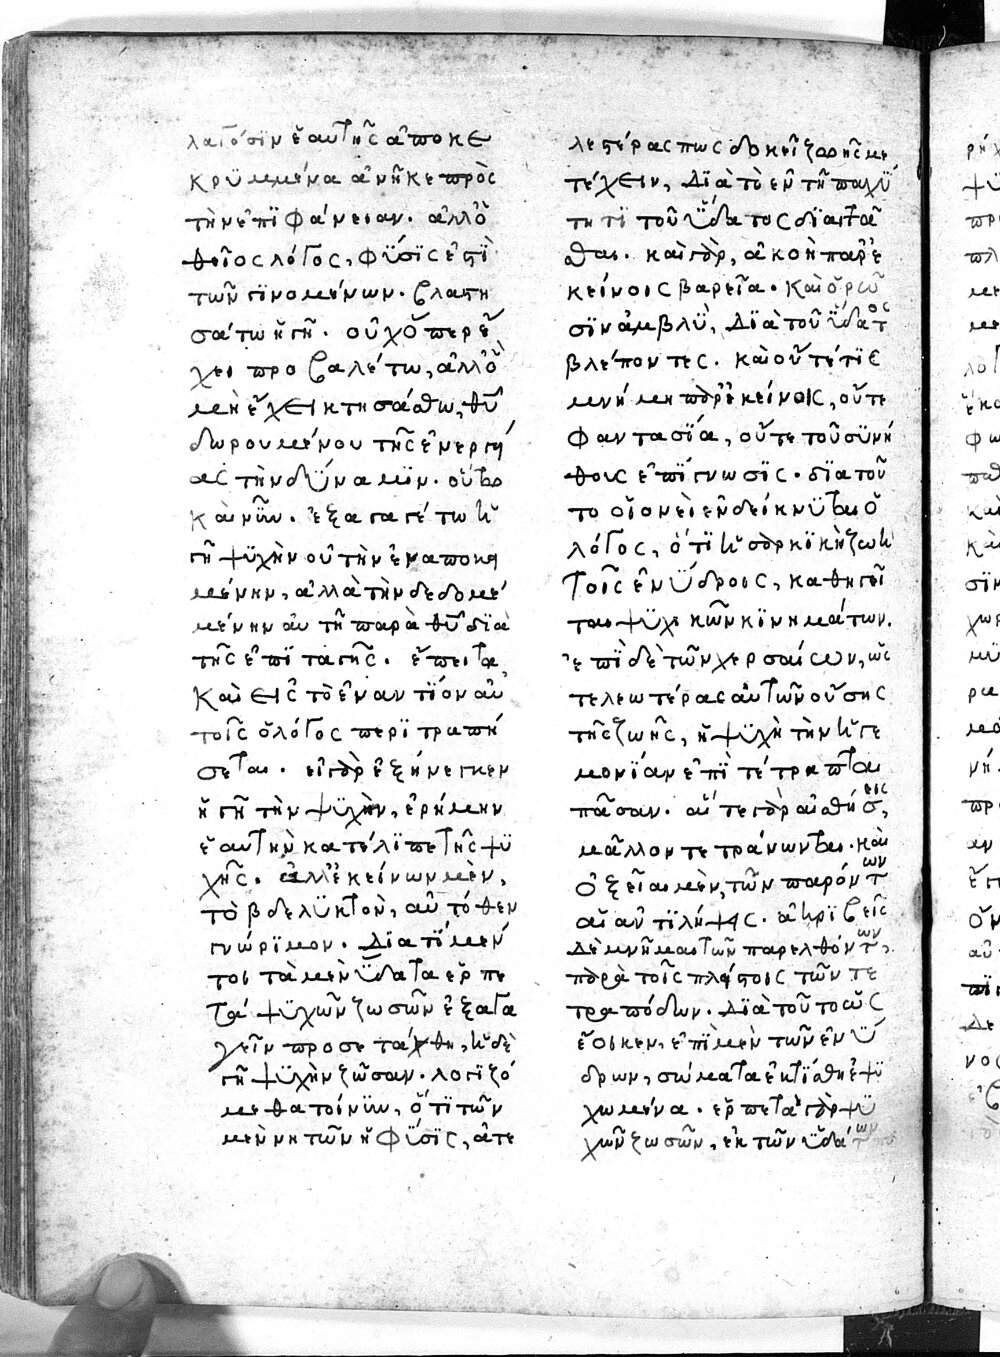 λαγόσιν ἑαυτῆς ἀποκε
κρυμμένα ἀνῆκε πρὸς
τὴν ἐπιφάνειαν. ἀλλ' ὁ
θεῖος λόγος, φύσις ἐστὶ
τῶν γινομένων. βλαστη
σάτω ἡ γῆ. οὐχ ὅπερ ἔ
χει προβαλέτω, ἀλλ' ὃ
μὴ ἔχει κτησάσθω, θῦ
δωρουμένου τῆς ἐνεργεί
ας τὴν δύναμιν. οὕτω
καὶ νῦν. ἐξαγαγέτω ἡ
γῆ ψυχὴν οὐ τὴν ἐναποκει
μένην, ἀλλὰ τὴν δεδομέ
μένην αὐτῇ παρὰ θῦ διὰ
τῆς ἐπιταγῆς. ἔπειτα
καὶ εἰς τὸ ἐναντίον αὐ
τοῖς ὁ λόγος περιτραπή
σεται. εἰ γὰρ ἐξήνεγκεν
ἡ γῆ τὴν ψυχὴν, ἐρήμην
ἑαυτὴν κατέλιπε τῆς ψυ
χῆς. ἀλλ' ἐκείνων μὲν,
τὸ βδελυκτὸν, αὐτόθεν
γνώριμον. Διατί μέν
τοι τὰ μὲν ὕδατα ἑρπε
τὰ ψυχῶν ζωσῶν ἐξαγα
γεῖν προσετάχθη, ἡ δὲ
γῆ ψυχὴν ζῶσαν. λογιζό
μεθα τοίνυν, ὅτι τῶν
μὲν νηκτῶν ἡ φύσις, ἀτε
λεστέρας πως δοκεῖ ζωῆς με
τέχειν, Διὰ τὸ ἐν τῇ παχύ
τητι τοῦ ὕδατος διαιτᾶ
σθαι. καὶ γὰρ, ἀκοὴ παρ' ἐ
κείνοις βαρεῖα. Καὶ ὁρῶ
σιν ἀμβλὺ, Διὰ τοῦ ὕδατος
βλέποντες. καὶ οὔτέ τις
μνήμη παρ' ἐκείνοις, οὔτε
φαντασία, οὔτε τοῦ συνή
θους ἐπίγνωσις. διὰ τοῦ
το οἱονεὶ ἐνδείκνυται ὁ
λόγος, ὅτι ἡ σαρκικὴ ζωὴ
τοῖς ἐνύδροις, καθηγεῖ
ται ψυχικῶν κινημάτων.
ἐπὶ δὲ τῶν χερσαίων, ὡς
τελεωτέρας αὐτῶν οὔσης
τῆς ζωῆς, ἡ ψυχὴ τὴν ἡγε
μονίαν ἐπιτέτραπται
πᾶσαν. αἵ τε γὰρ αἰσθήσεις,
μᾶλλον τετράνωνται. καὶ
ὀξεῖαι μὲν, τῶν παρόντων
αἱ ἀντιλήψεις. ἀκριβεῖς
Δὲ μνῆμαι τῶν παρελθόντων,
παρὰ τοῖς πλείστοις τῶν τε
τραπόδων. Διὰ τοῦτο ὡς
ἔοικεν, ἐπὶ μὲν τῶν ἐνύ
δρων, σώματα ἐκτίσθη ἐψυ
χωμένα. ἑρπετὰ γὰρ ψυ
χῶν ζωσῶν, ἐκ τῶν ὑδάτων